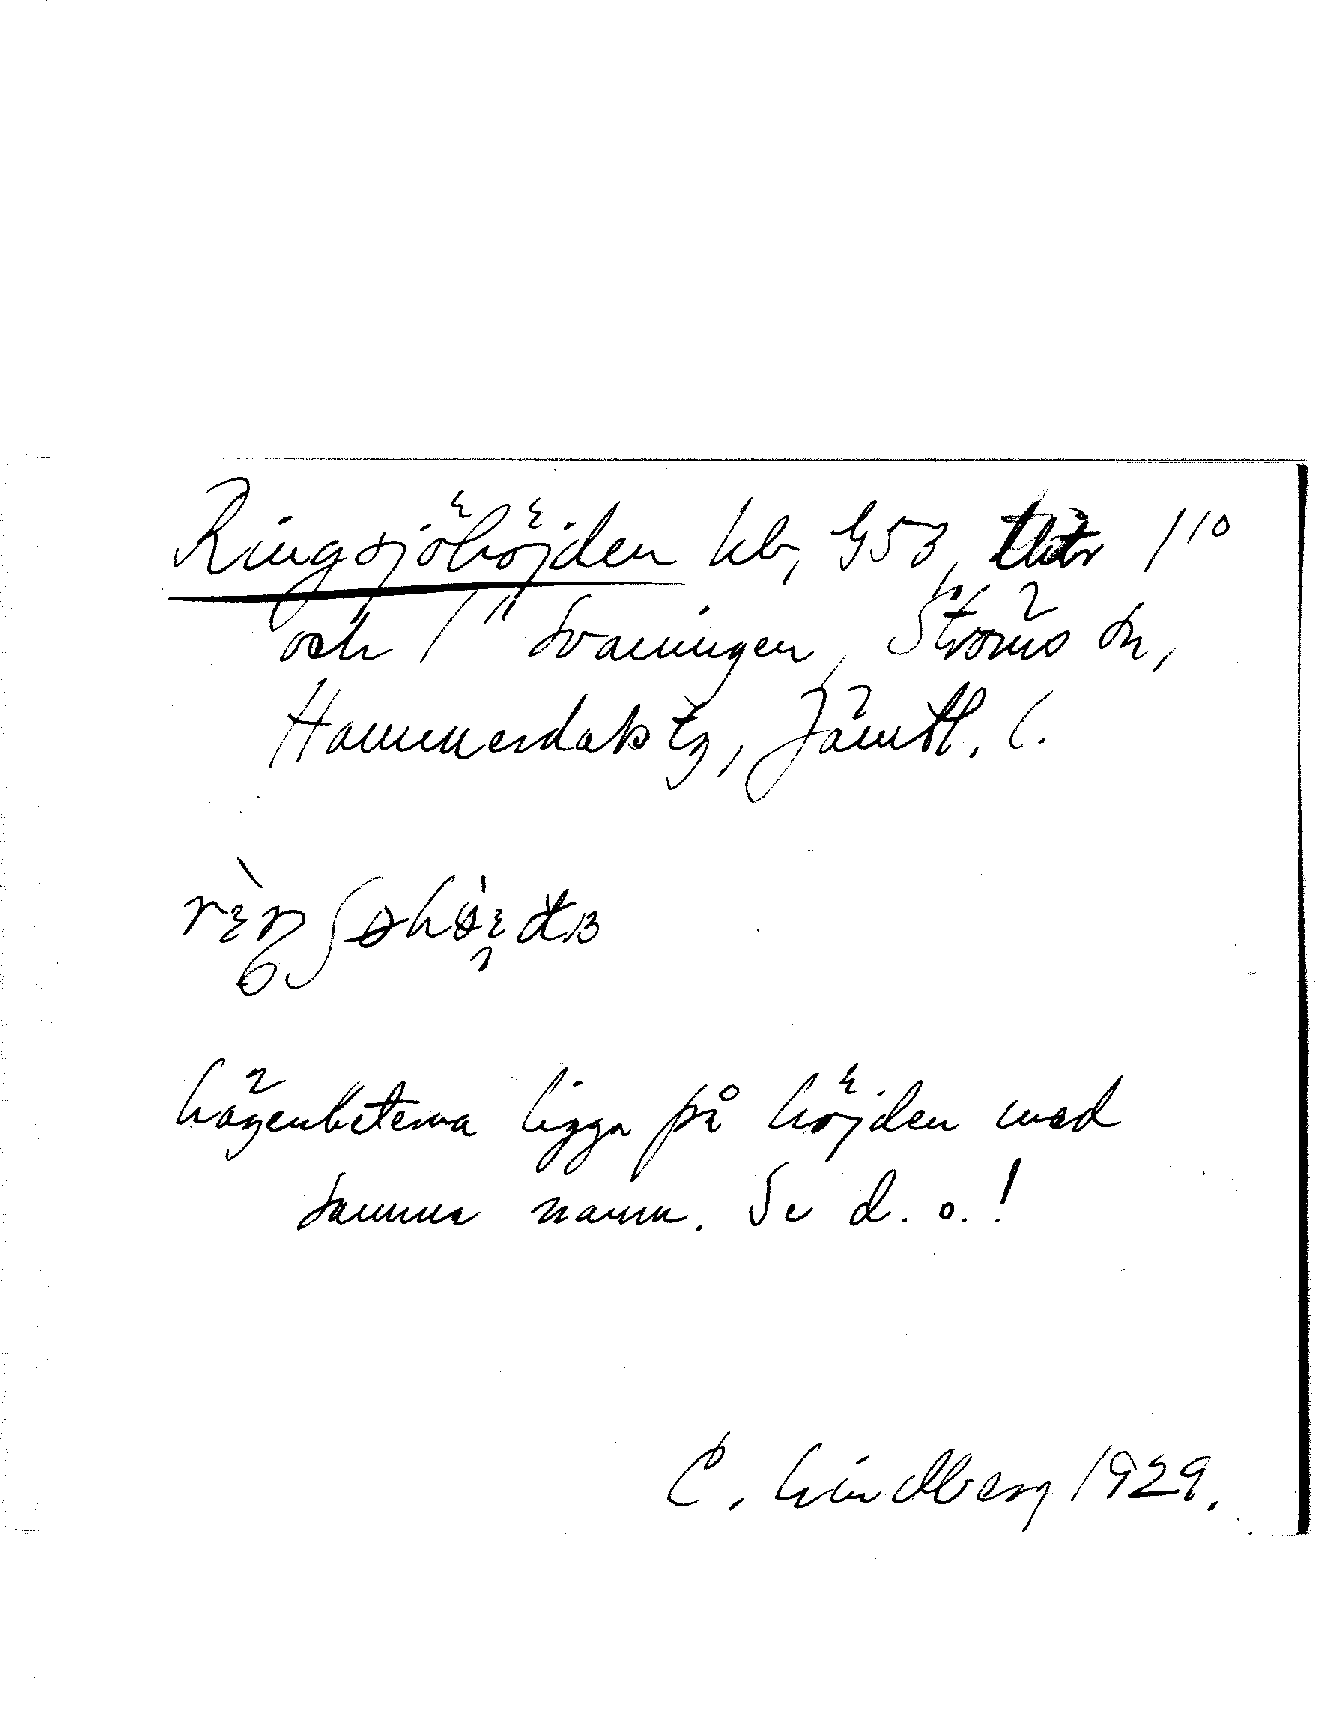 Ringsjöhöjden lh, G53, 1¹⁰
och 1¹¹ Svaningen, Ströms sn,
Hammerdals tg, Jämtl. l.
Lägenheterna ligga på höjden med
samma namn. Se d. o.!
C. Lindberg 1929.